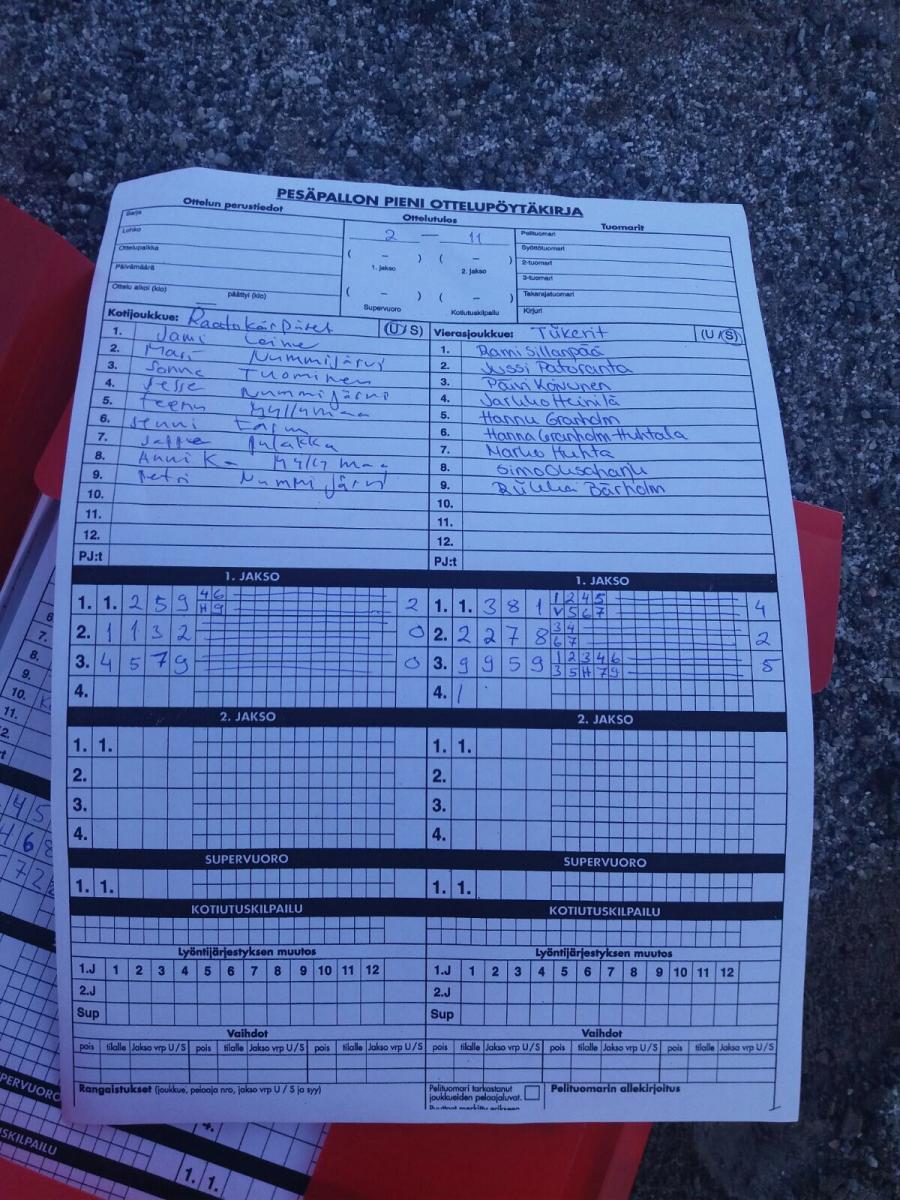 PESÄPALLON PIENI OTTELUPÖYTÄKIRJA
Ottelun perustiedot
Sarja
Lohko
Ottelupaikka
Päivämäärä
Ottelu alkoi (klo) päättyi (klo)
Ottelutulos
2 — 11
( – ) ( – )
1. jakso 2. jakso
( – ) ( – )
Supervuoro Kotiutuskilpailu
Tuomarit
Pelituomari
Syöttötuomari
2-tuomari
3-tuomari
Takarajatuomari
Kirjuri
Kotijoukkue: Raatokärpäset (U / S)
1. Jami Laine
2. Mari Nummijärvi
3. Sanna Tuominen
4. Jesse Nummijärvi
5. Teemu Myllymaa
6. Jenni
7.
8. Anni K- Myllymaa
9. Petri Nummijärvi
10.
11.
12.
PJ:t
Vierasjoukkue: Tiikerit (U / S)
1. Rami Sillanpää
2. Jussi Pataranta
3. Päivi Koivunen
4. Jarkko Heinilä
5. Hannu Granholm
6. Hanna Granholm-Huhtala
7. Marko Huhta
8. Simo
9. Riikka Bärholm
10.
11.
12.
PJ:t
1. JAKSO
1. 1. 2 5 9 4 6 2
H 9
2. 1 1 3 2 0
3. 4 5 7 9 0
4.
1. JAKSO
1. 1. 3 8 1 1 2 4 5 4
V 5 6 7
2. 2 2 7 8 3 4 2
6 7
3. 9 9 5 9 1 2 3 4 6 5
3 5 H 7 9
4. 1
2. JAKSO
1. 1.
2.
3.
4.
2. JAKSO
1. 1.
2.
3.
4.
SUPERVUORO
1. 1.
SUPERVUORO
1. 1.
KOTIUTUSKILPAILU
KOTIUTUSKILPAILU
Lyöntijärjestyksen muutos
1.J 1 2 3 4 5 6 7 8 9 10 11 12
2.J
Sup
Lyöntijärjestyksen muutos
1.J 1 2 3 4 5 6 7 8 9 10 11 12
2.J
Sup
Vaihdot
pois tilalle Jakso vrp U / S pois tilalle Jakso vrp U / S pois tilalle Jakso vrp U / S
Vaihdot
pois tilalle Jakso vrp U / S pois tilalle Jakso vrp U / S pois tilalle Jakso vrp U / S
Rangaistukset (joukkue, pelaaja nro, jakso vrp U / S ja syy)
Pelituomari tarkastanut
joukkueiden pelaajaluvat.
Pelituomarin allekirjoitus